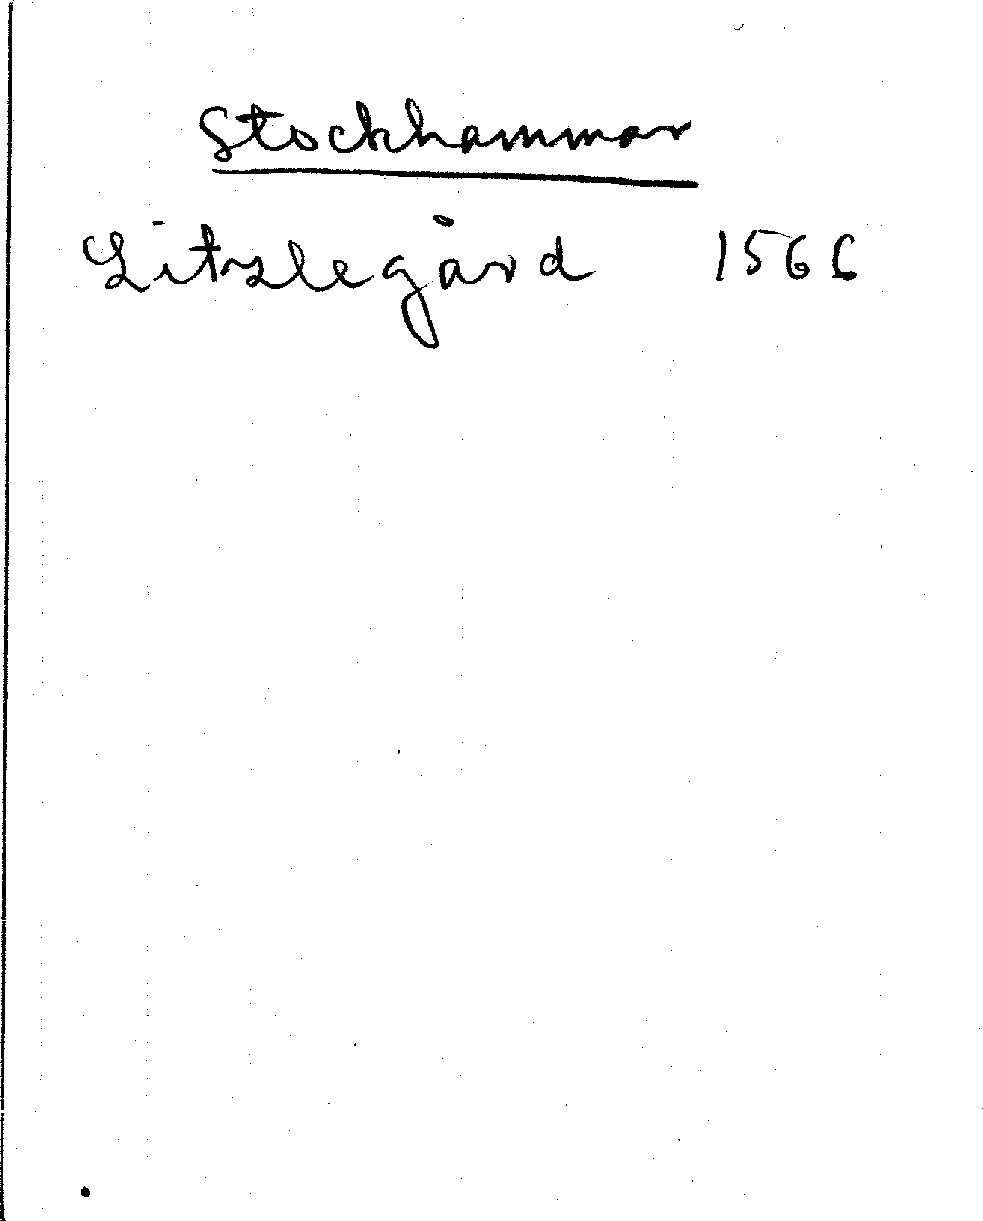 Stockhammar
Litzlegård 1566